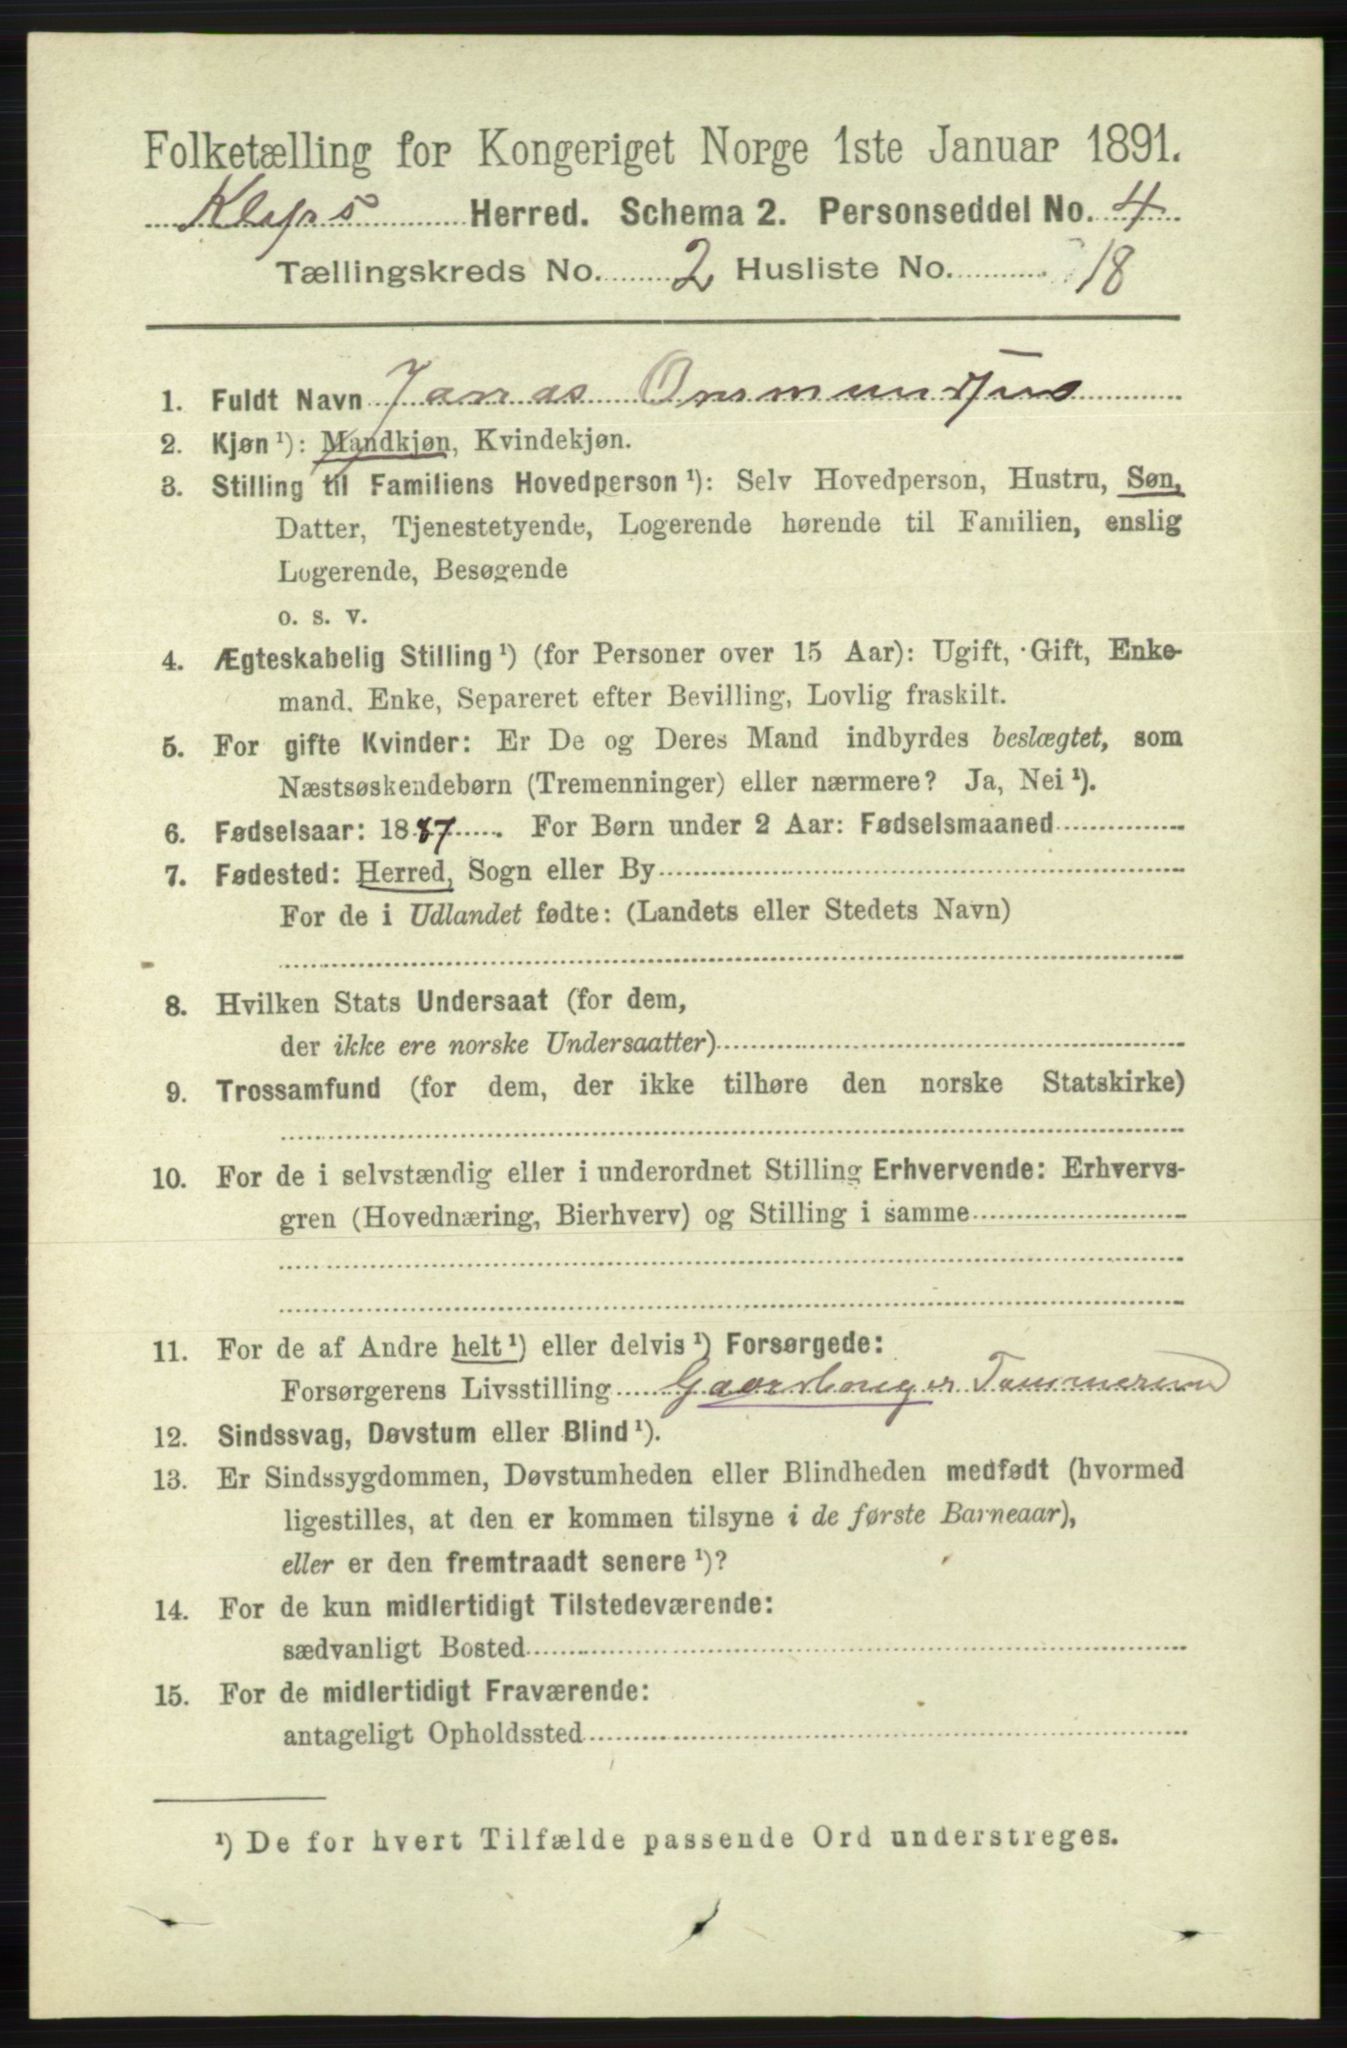 Folketælling for Kongeriget Norge 1ste Januar 1891.
Kleps Herred. Schema 2. Personseddel No. 4
Tællingskreds No. 2 Husliste No. 18
1. Fuldt Navn Jonas
2. Kjøn ¹): Mandkjøn, Kvindekjøn.
3. Stilling til Familiens Hovedperson ¹): Selv Hovedperson, Hustru, Søn,
Datter, Tjenestetyende, Logerende hørende til Familien, enslig
Logerende, Besøgende
o. s. v.
4. Ægteskabelig Stilling ¹) (for Personer over 15 Aar): Ugift, Gift, Enke-
mand, Enke, Separeret efter Bevilling, Lovlig fraskilt.
5. For gifte Kvinder: Er De og Deres Mand indbyrdes beslægtet, som
Næstsøskendebørn (Tremenninger) eller nærmere? Ja, Nei ¹).
6. Fødselsaar: 1887. For Børn under 2 Aar: Fødselsmaaned
7. Fødested: Herred, Sogn eller By
For de i Udlandet fødte: (Landets eller Stedets Navn)
8. Hvilken Stats Undersaat (for dem,
der ikke ere norske Undersaatter)
9. Trossamfund (for dem, der ikke tilhøre den norske Statskirke)
10. For de i selvstændig eller i underordnet Stilling Erhvervende: Erhvervs-
gren (Hovednæring, Bierhverv) og Stilling i samme
11. For de af Andre helt ¹) eller delvis ¹) Forsørgede:
Forsørgerens Livsstilling
12. Sindssvag, Døvstum eller Blind ¹).
13. Er Sindssygdommen, Døvstumheden eller Blindheden medfødt (hvormed
ligestilles, at den er kommen tilsyne i de første Barneaar),
eller er den fremtraadt senere ¹)?
14. For de kun midlertidigt Tilstedeværende:
sædvanligt Bosted
15. For de midlertidigt Fraværende:
antageligt Opholdssted
¹) De for hvert Tilfælde passende Ord understreges.